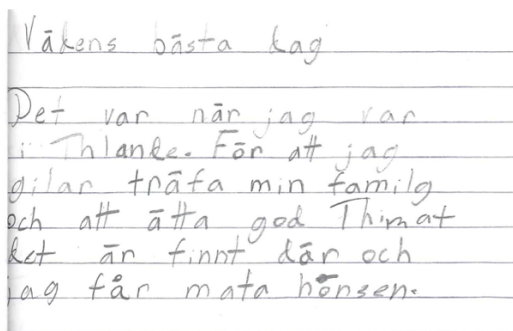 Våkens bästa dag
Det var när jag var
i Thlande. För att jag
gilar träfa min familg
och att ätta god Thimat
det är finnt där och
jag får mata hönsen.